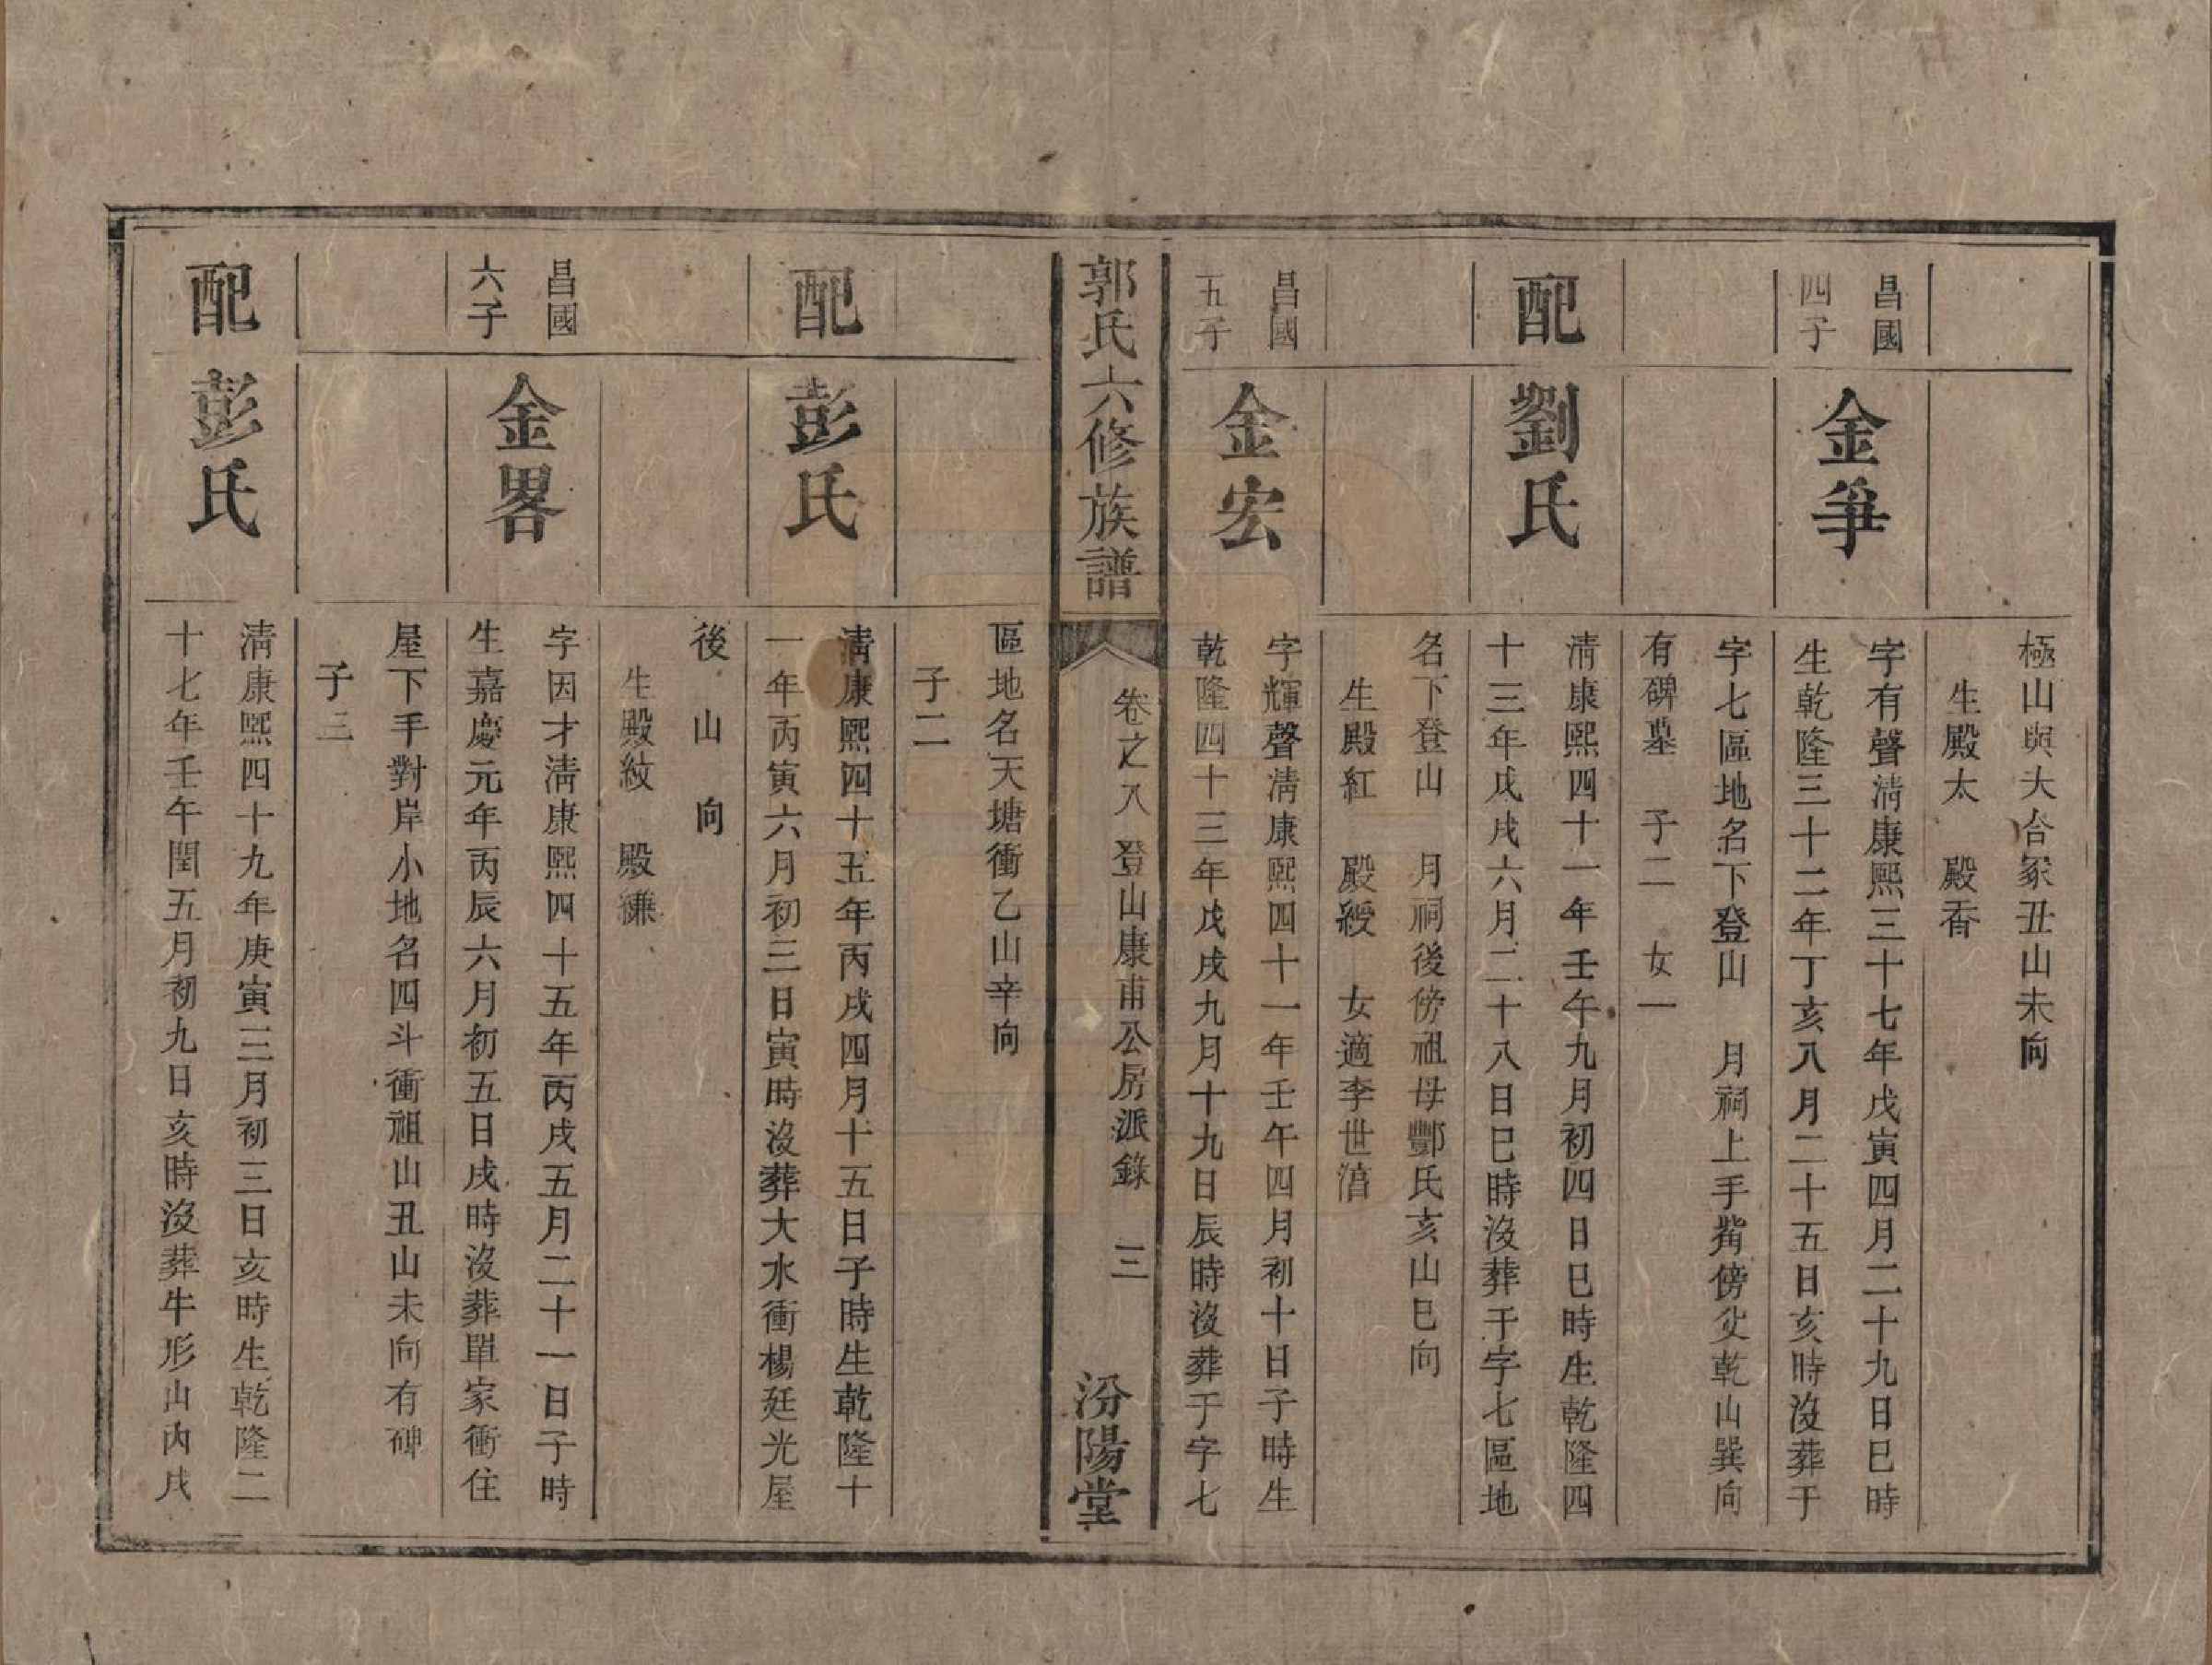 極山與大合冢丑山未向
生殿太　殿香
昌國
四子
金爭
字有聲清康熙三十七年戊寅四月二十九日巳時
生乾隆三十二年丁亥八月二十五日亥時沒葬于
字七區地名下登山　月祠上手塉傍父乾山巽向
有碑墓　子二　女一
配
劉氏
清康熙四十一年壬午九月初四日巳時生乾隆四
十三年戊戌六月二十八日巳時沒葬于字七區地
名下登山　月祠後傍祖母酆氏亥山巳向
生殿紅　殿綬　女適李世
昌國
五子
金宏
字輝聲清康熙四十一年壬午四月初十日子時生
乾隆四十三年戊戌九月十九日辰時沒葬于字七
郭氏六修族譜
卷之八　登山康甫公房派錄　三
汾陽堂
區地名天塘衝乙山辛向
子二
配
彭氏
清康熙四十五年丙戌四月十五日子時生乾隆十
一年丙寅六月初三日寅時沒葬大水衝楊廷光屋
後山向
生殿紋　殿縑
昌國
六子
金畧
字因才清康熙四十五年丙戌五月二十一日子時
生嘉慶元年丙辰六月初五日戌時沒葬單家衝住
屋下手對岸小地名四斗衝祖山丑山未向有碑
子三
配
彭氏
清康熙四十九年庚寅三月初三日亥時生乾隆二
十七年壬午閏五月初九日亥時沒葬牛形山內戌